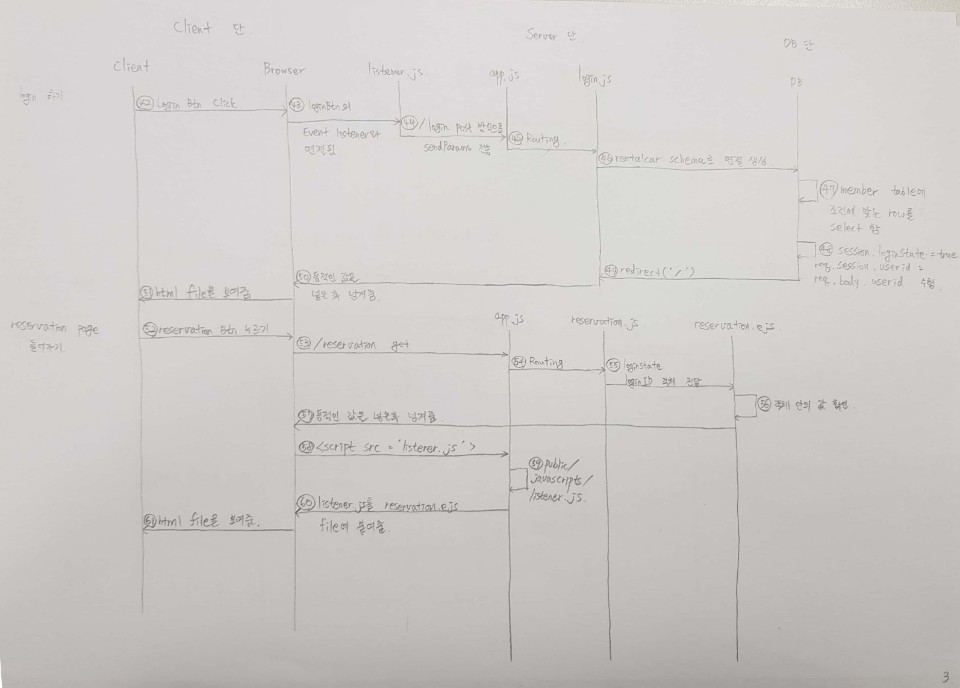 Client 단
Server 단
DB 단
Client
Browser
listener.js
app.js
login.js
DB
login 하기
42 login btn click
43 loginBtn의
Event listener와
연결됨
44 /login post 방식으로
sendParams 전송
45 Routing
46 rentalcar schema로 연결 생성
47 member table에
조건에 맞는 row를
select 함
48 session.loginState = true
req.session.userid =
req.body.userid 수행
49 redirect('/')
50 동적인 값을
넣은 후 넘겨줌
51 html file을 보여줌
reservation page
들어가기
app.js
reservation.js
reservation.ejs
52 reservation btn 누르기
53 /reservation get
54 Routing
55 loginstate
loginID 객체 전달
56 객체 안의 값 확인
57 동적인 값을 넣은후 넘겨줌
58 <script src = 'listener.js'>
59 public/
javascripts/
listener.js
60 listener.js를 reservation.ejs
file에 붙여줌.
61 html file을 보여줌.
3